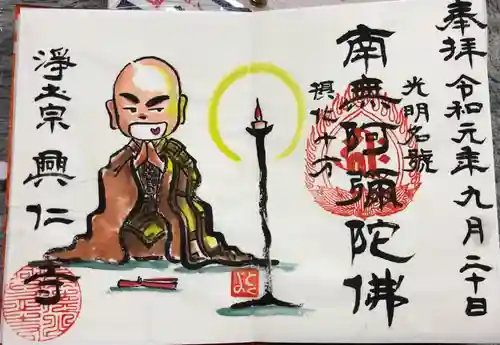 奉拝 令和元年九月二十日
光明名號
南無阿彌陀佛
摂化十方
淨土宗 興仁寺